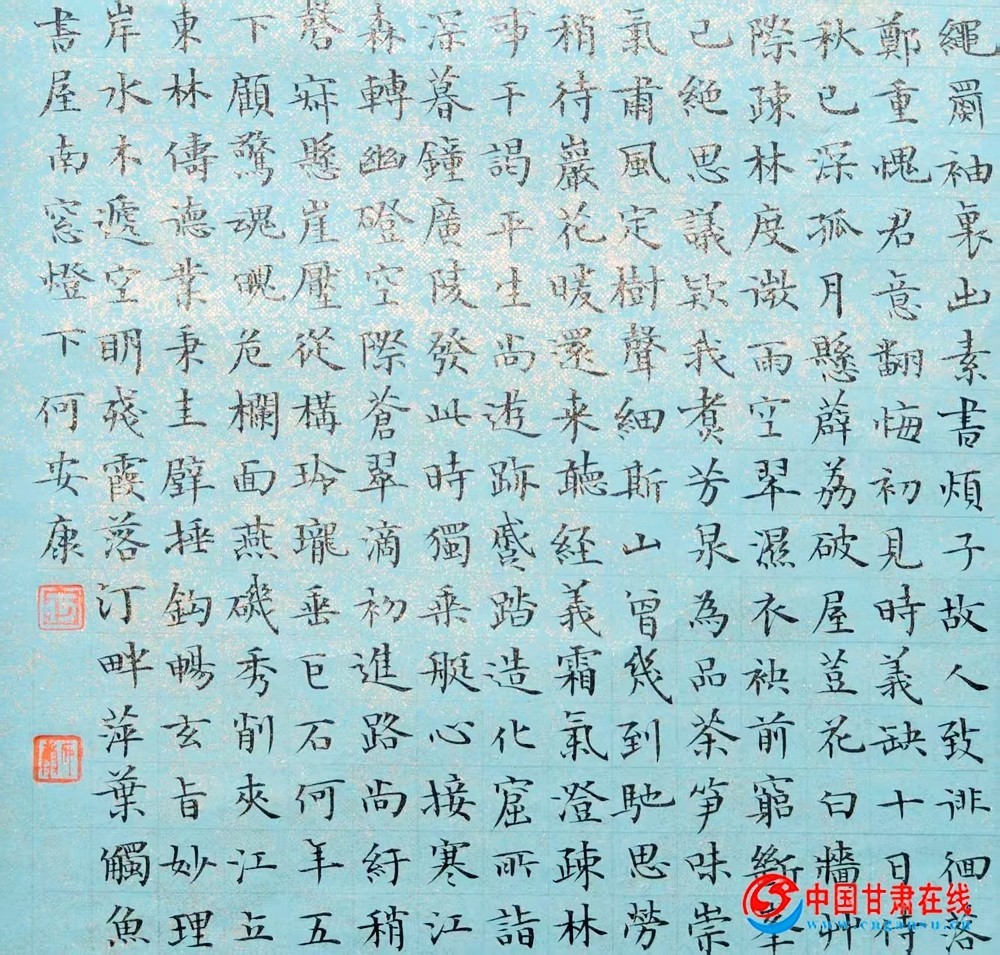 繩袖裏出素書煩子故人致徘徊落
鄭重愧君意翻悔初見時義缺十日待
秋已深孤月懸薜荔破屋荳花白牆艸
際疎林度微雨空翠濕衣袂前窮斷峯
已絕思議欵我煑芳泉為品茶笋味崇
氣肅風定樹聲細斯山曾幾到馳思勞
稍待巖花暖還来聽経義霜氣澄疎林
事干謁平生尚遊跡蹙踏造化窟所詣
深暮鐘廣陵發此時獨乗艇心接寒江
森轉幽磴空際蒼翠滴初進路尚紆稍
磬懸崖壓從構玲瓏垂巨石何年五
下顧驚魂魄危欄面燕磯秀削夾江立
東林儔德業秉圭璧捶鈎暢玄旨妙理
岸水木遞空明殘霞落汀畔萍葉觸魚
書屋南窓燈下何安康
中国甘肃在线
www.cngansu.cn